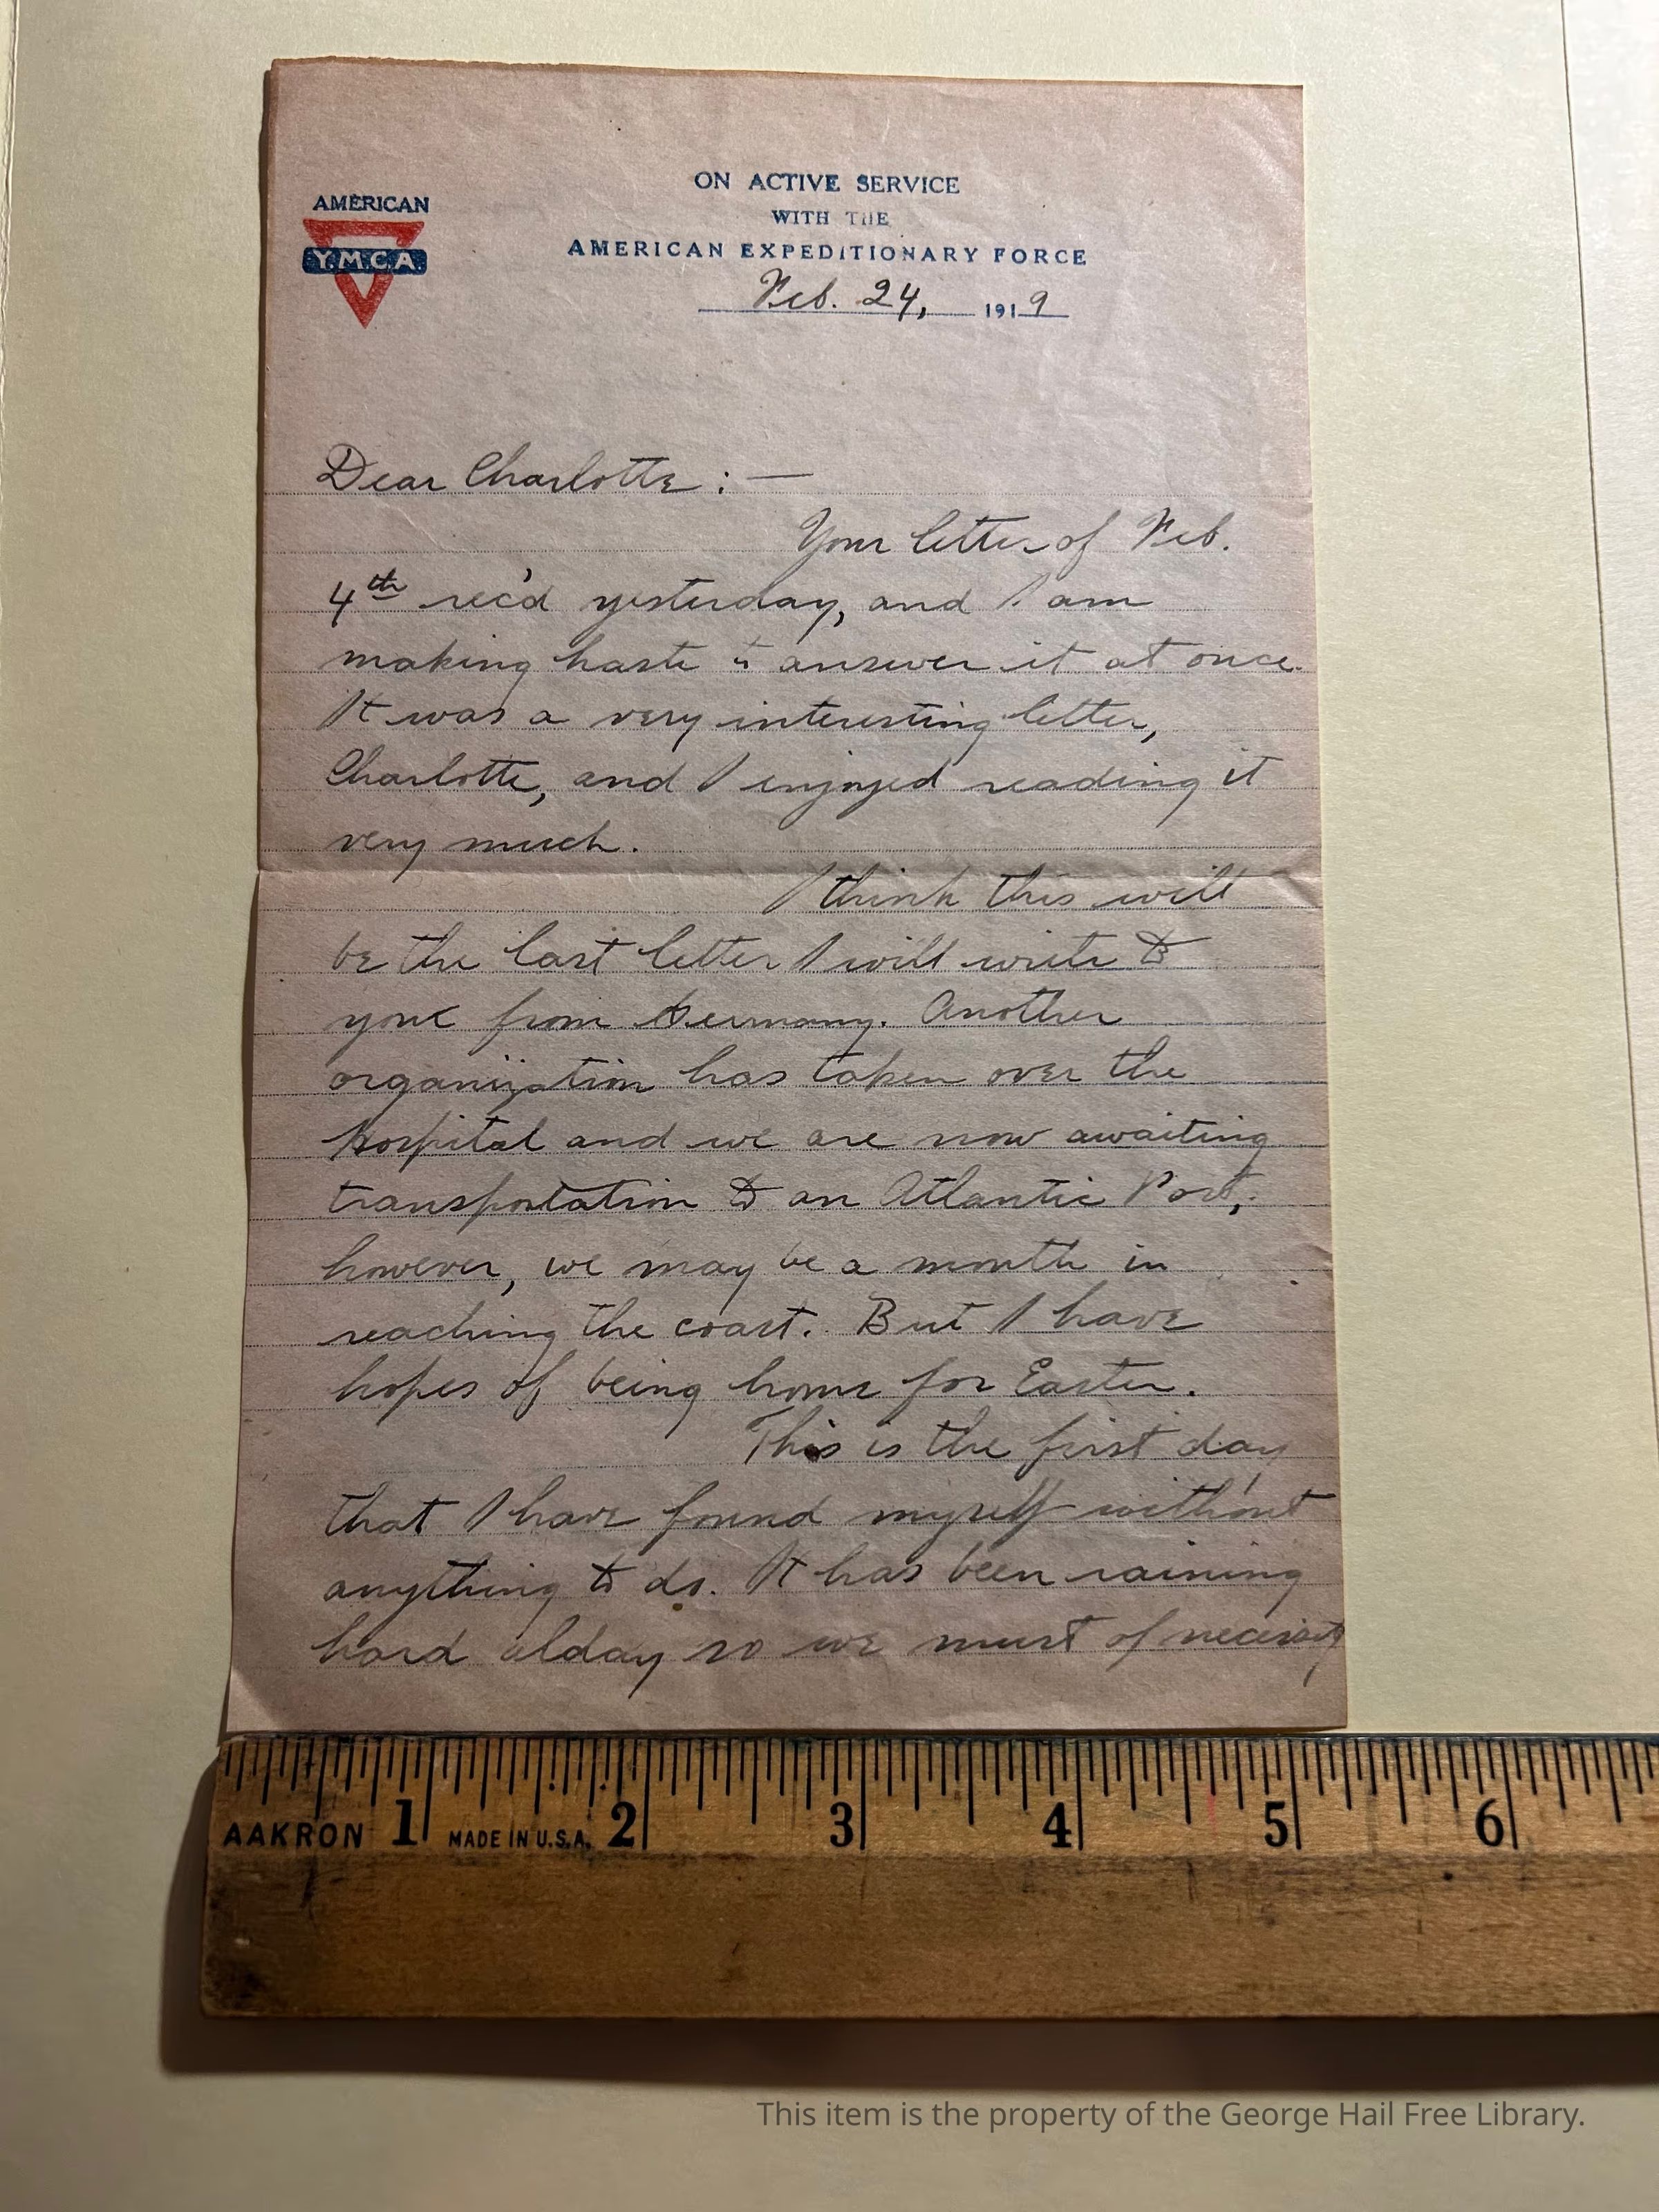 ON ACTIVE SERVICE
WITH THE
AMERICAN EXPEDITIONARY FORCE
AMERICAN
Y.M.C.A.
Feb. 24, 1919
Dear Charlotte : —
Your letter of Feb.
4th rec'd yesterday, and I am
making haste to answer it at once.
It was a very interesting letter,
Charlotte, and I enjoyed reading it
very much.
I think this will
be the last letter I will write to
you from Germany. Another
organization has taken over the
Hospital and we are now awaiting
transportation to an Atlantic Port,
however, we may be a month in
reaching the coast. But I have
hopes of being home for Easter.
This is the first day
that I have found myself without
anything to do. It has been raining
hard alday so we must of necessity
AAKRON 1 MADE IN U.S.A. 2 3 4 5 6
This item is the property of the George Hail Free Library.